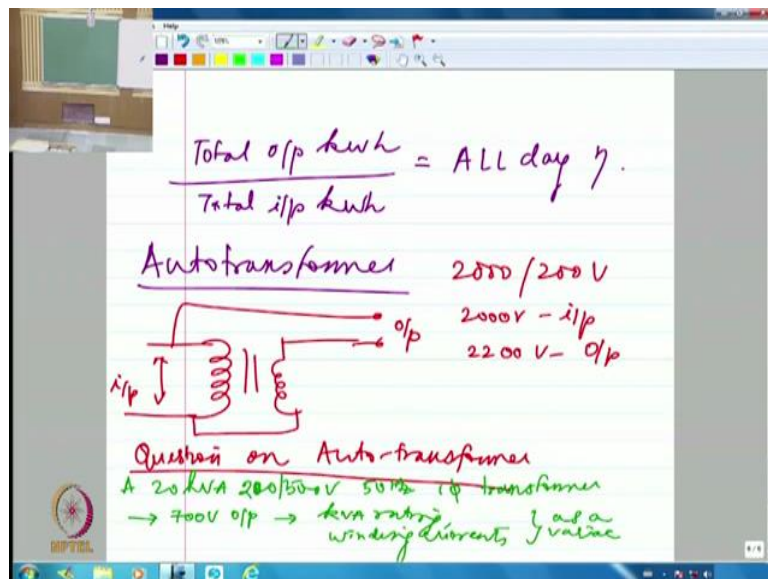 Help
Total o/p kwh
= ALL day η.
Total i/p kwh
Autotransformer
2000/200V
2000V - i/p
2200V - O/p
o/p
i/p
Question on Auto-transformer
A 20 kVA 200/500V 50Hz 1φ transformer
→ 700V o/p → kVA rating
winding currents } as a variac
NPTEL